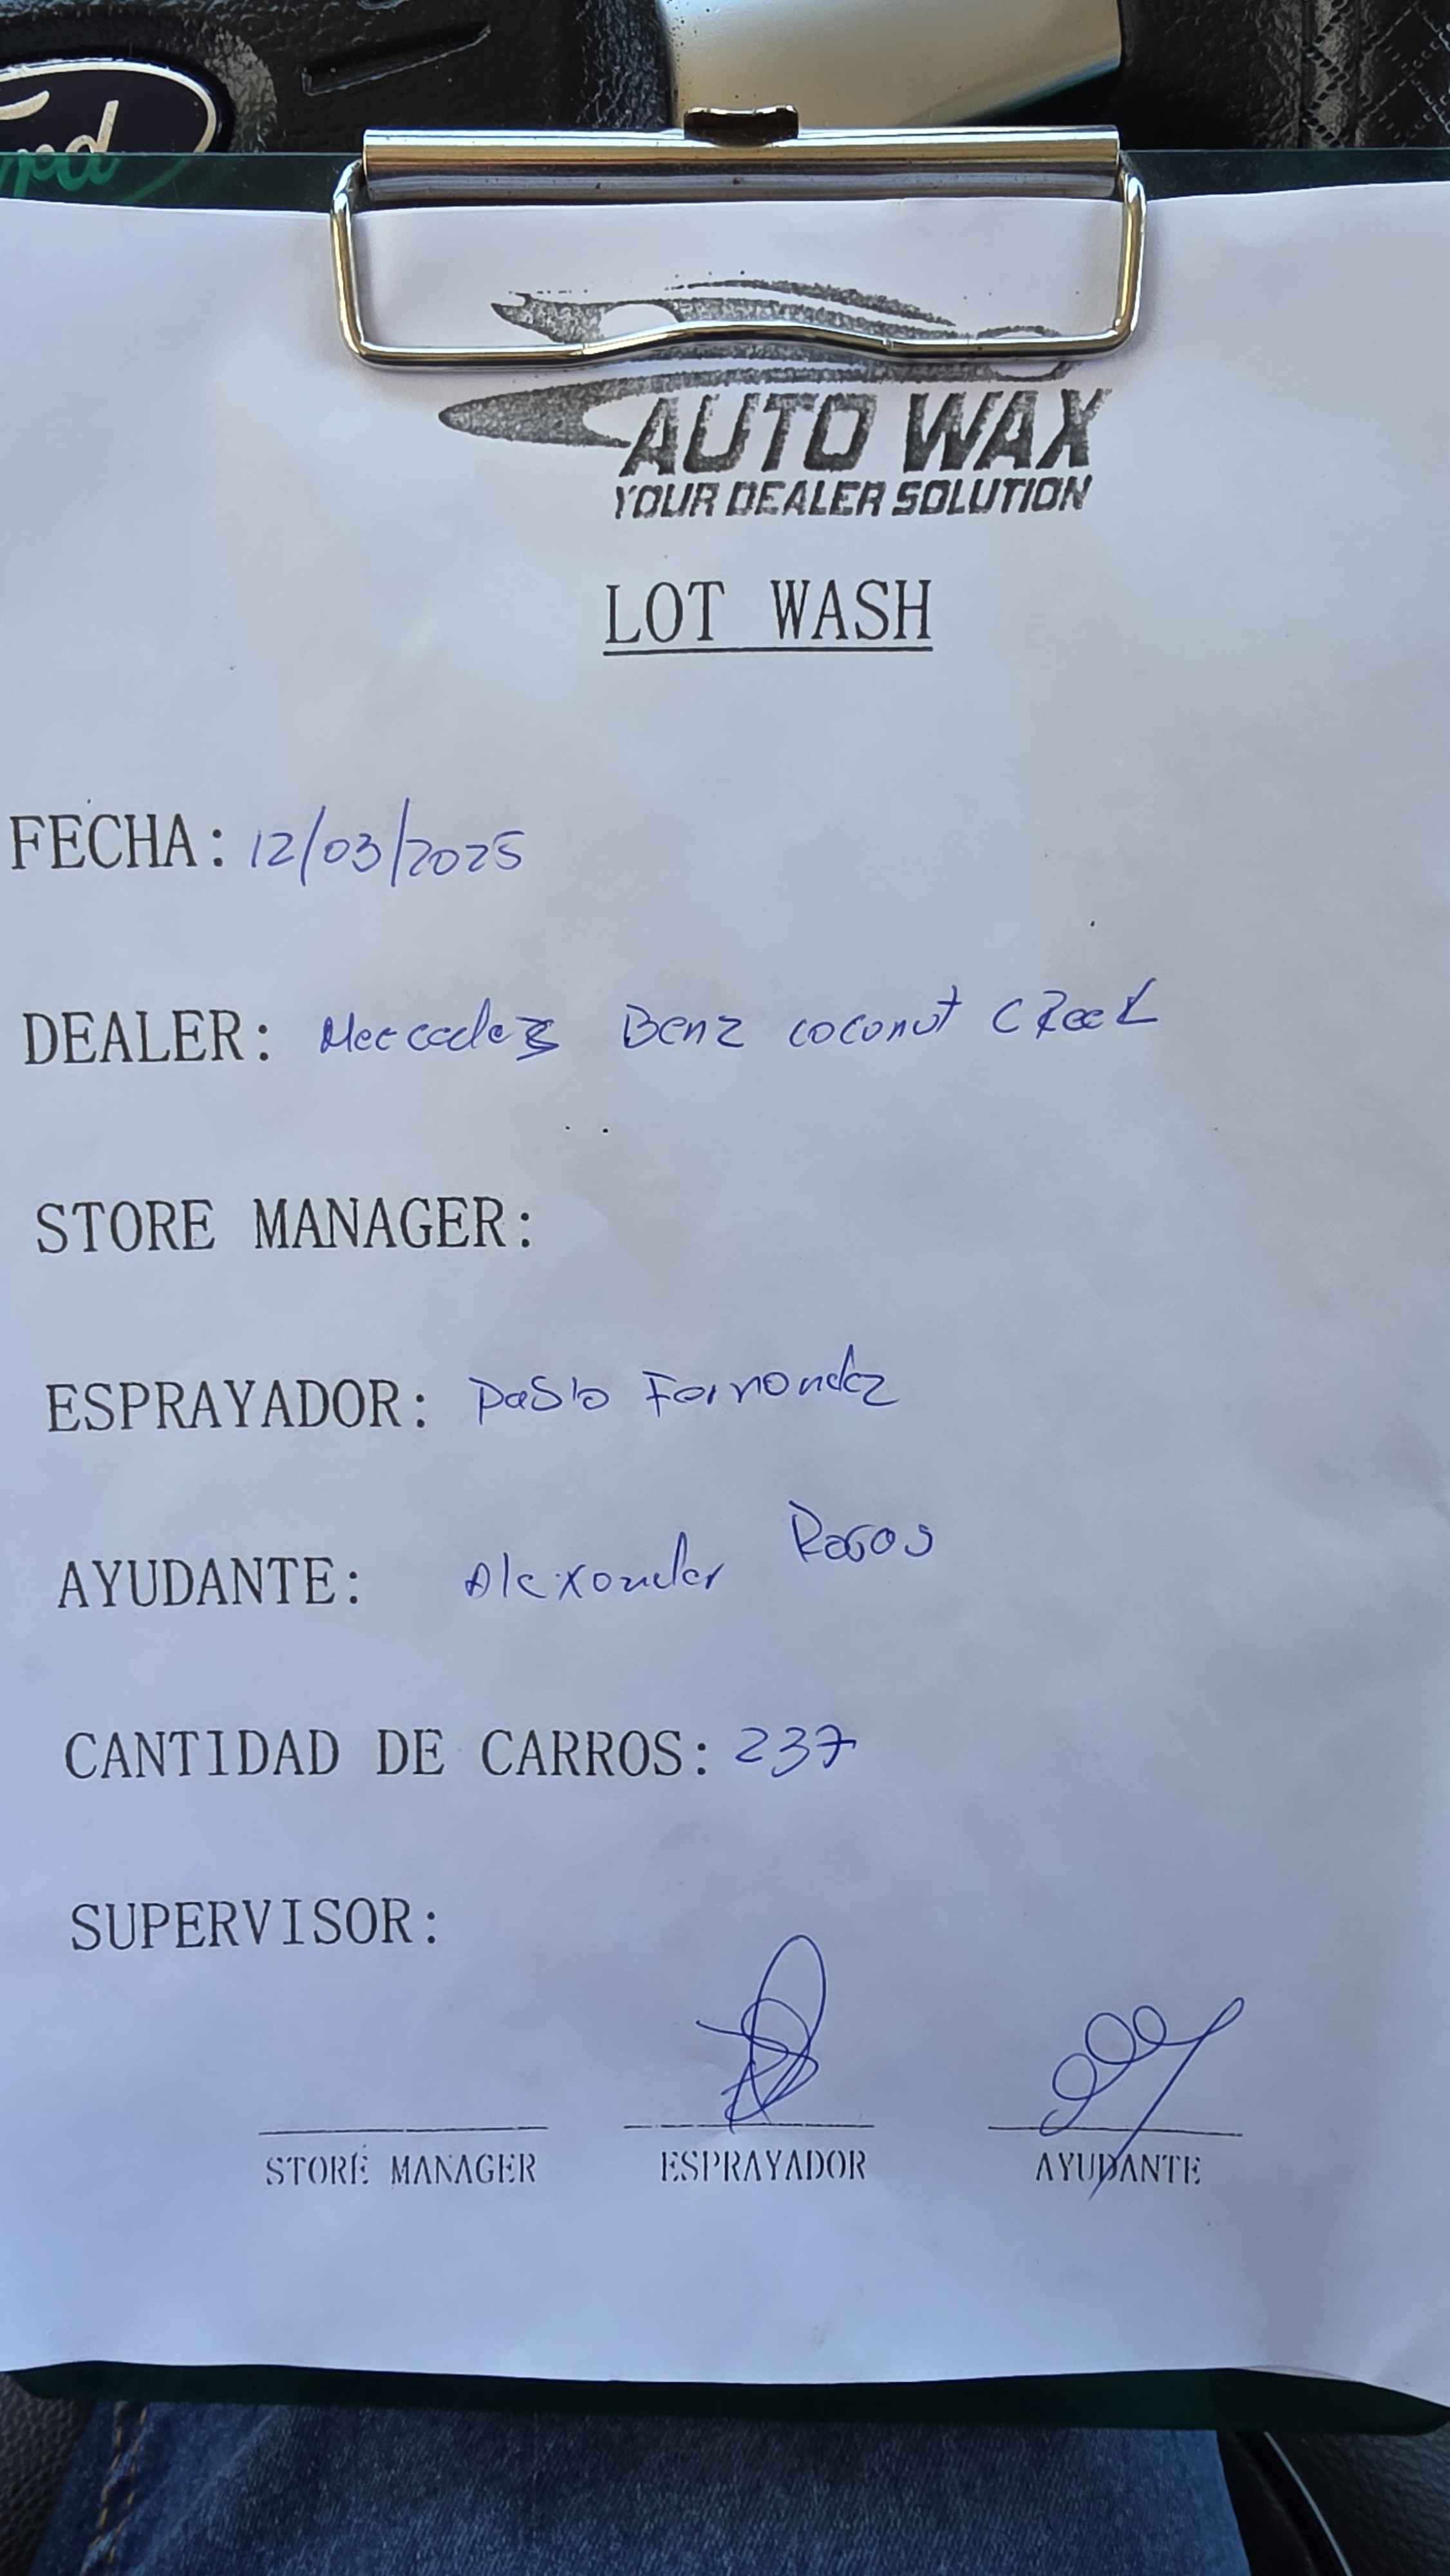 Ford
AUTO WAX
YOUR DEALER SOLUTION
LOT WASH
FECHA: 12/03/2025
DEALER: Mercedes Benz coconut CReek
STORE MANAGER:
ESPRAYADOR: Pablo Fernandez
AYUDANTE: Alexander
CANTIDAD DE CARROS: 237
SUPERVISOR:
STORE MANAGER ESPRAYADOR AYUDANTE